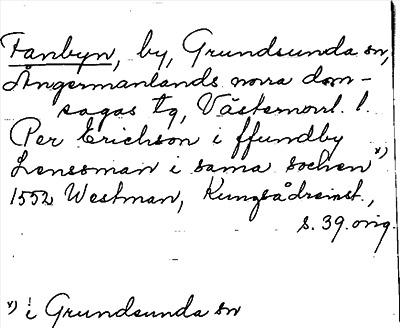 Fanbyn, by, Grundsunda sn,
Ångermanlands norra dom-
sagas tg, Västernorrl. l.
Per Erichson i ffundby
Lenssman i sama sochen x)
1552 Westman, Kungsådreinst.,
s. 39. orig.
x) i Grundsunda sn